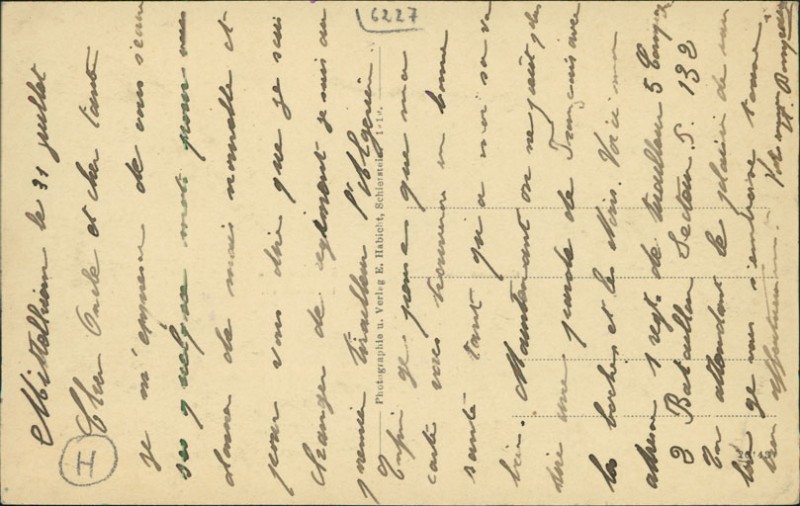 6227
I
Mittelheim le 31 juillet
Cher Oncle et cher tante
je m'empresse de vous écrire
ses quelque mots pour vous
donner de mais nouvelle et
pour vous dire que je suis
changer de regiment je suis au
premier tirailleur l'Algerien
Photographie u. Verlag E. Habicht, Schierstein
Enfin je pense que ma
carte vous trouvera en bonne
santé tant qu'a moi sa va
bien. Maintenant on ne peut plus
dire une parole de Français avec
les boches et les Noirs. Voici mon
adresse 1 regt. de tirailleur 5 Compag
3 Bataillon Secteur P. 132
En attendant le plaisir de vous
lire je vous embrasse tous
bien affectueusement.